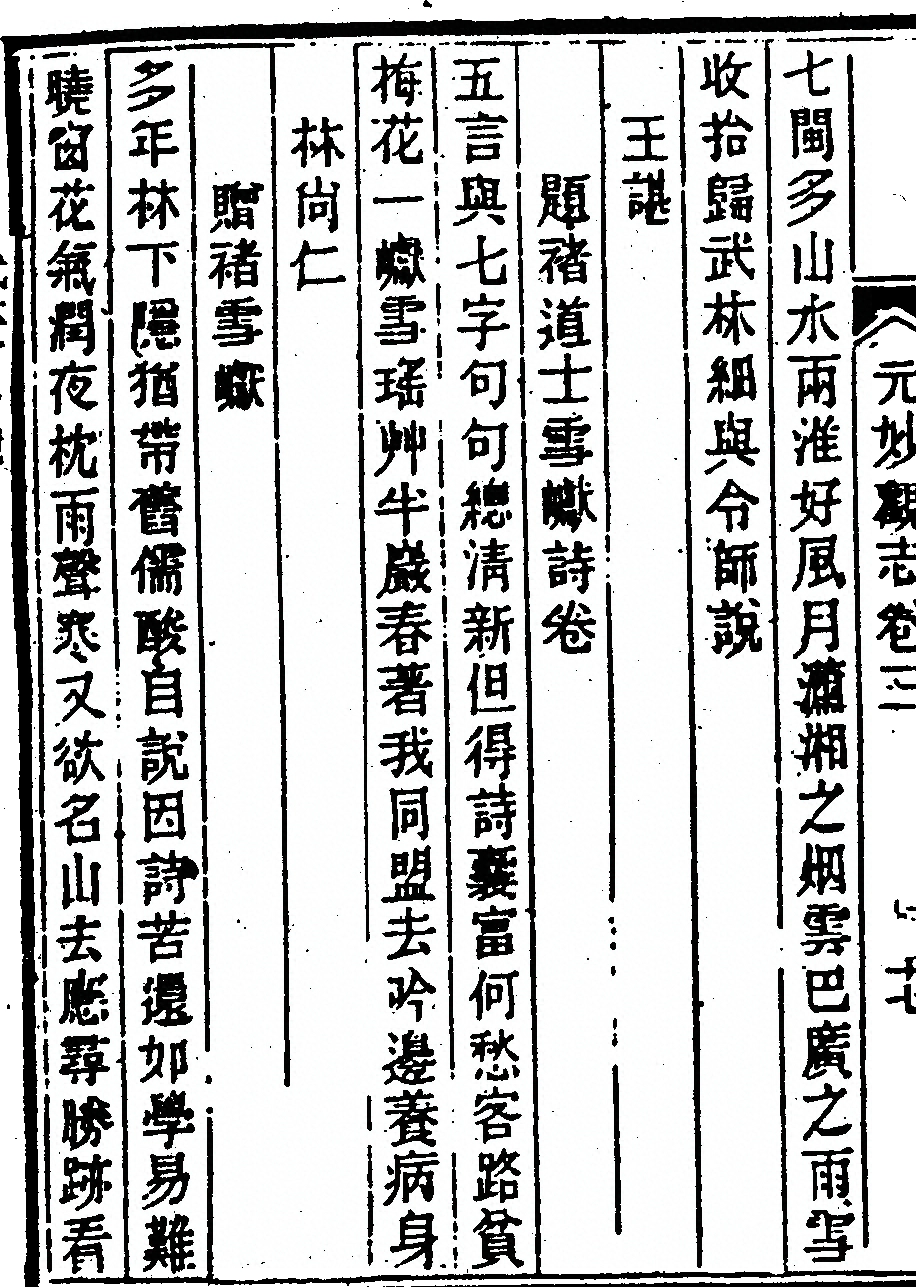 元妙觀志卷三
七
七閩多山水兩淮好風月瀟湘之烟雲巴廣之雨雪
收拾歸武林細與令師說
王諶
題褚道士雪巘詩卷
五言與七字句句總清新但得詩囊富何愁客路貧
梅花一巘雪瑤艸半巖春著我同盟去吟邊養病身
林尚仁
贈褚雪巘
多年林下隱猶帶舊儒酸自說因詩苦還如學易難
曉窗花氣潤夜枕雨聲寒又欲名山去應尋勝跡看